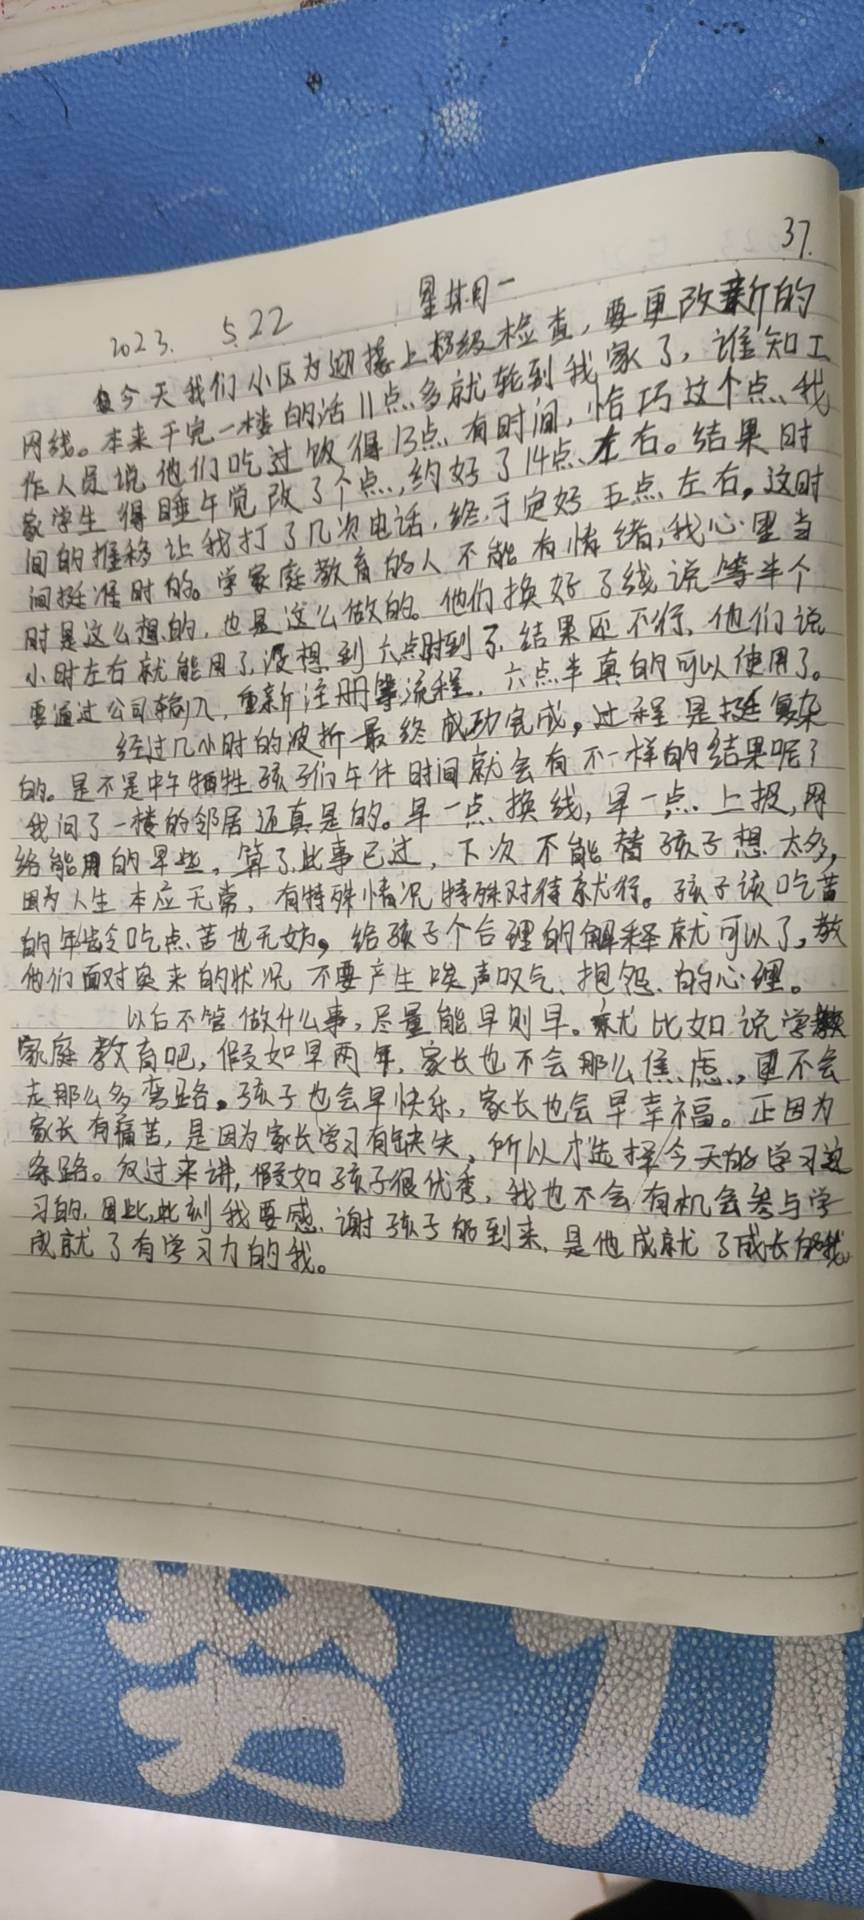 37.
2023. 5.22 星期一
今天我们小区为迎接上级检查，要更改新的
网线。本来干完一楼的活11点多就轮到我家了，谁知工
作人员说他们吃过饭得13点有时间，恰巧这个点、我
家学生得睡午觉改了个点，约好了14点左右。结果时
间的推移让我打了几次电话，终于定好五点左右，这时
间挺准时的。学家庭教育的人不能有情绪，我心里当
时是这么想的，也是这么做的。他们换好了线说等半个
小时左右就能用了，没想到六点时到了，结果还不行，他们说
要通过公司输入，重新注册等流程，六点半真的可以使用了。
经过几小时的波折最终成功完成，过程是挺复杂
的。是不是中午牺牲孩子们午休时间就会有不一样的结果呢？
我问了一楼的邻居还真是的。早一点换线，早一点上报，网
络能用的早些，算了此事已过，下次不能替孩子想太多，
因为人生本应无常，有特殊情况特殊对待就行。孩子该吃苦
的年龄吃点苦也无妨，给孩子个合理的解释就可以了，教
他们面对突来的状况不要产生唉声叹气、抱怨的心理。
以后不管做什么事，尽量能早则早。就比如说学
家庭教育吧，假如早两年，家长也不会那么焦虑，更不会
走那么多弯路。孩子也会早快乐，家长也会早幸福。正因为
家长有痛苦，是因为家长学习有缺失，所以才选择今天的学习这
条路。反过来讲，假如孩子很优秀，我也不会有机会参与学
习的，因此，此刻我要感谢孩子的到来，是他成就了成长的我
成就了有学习力的我。
努力